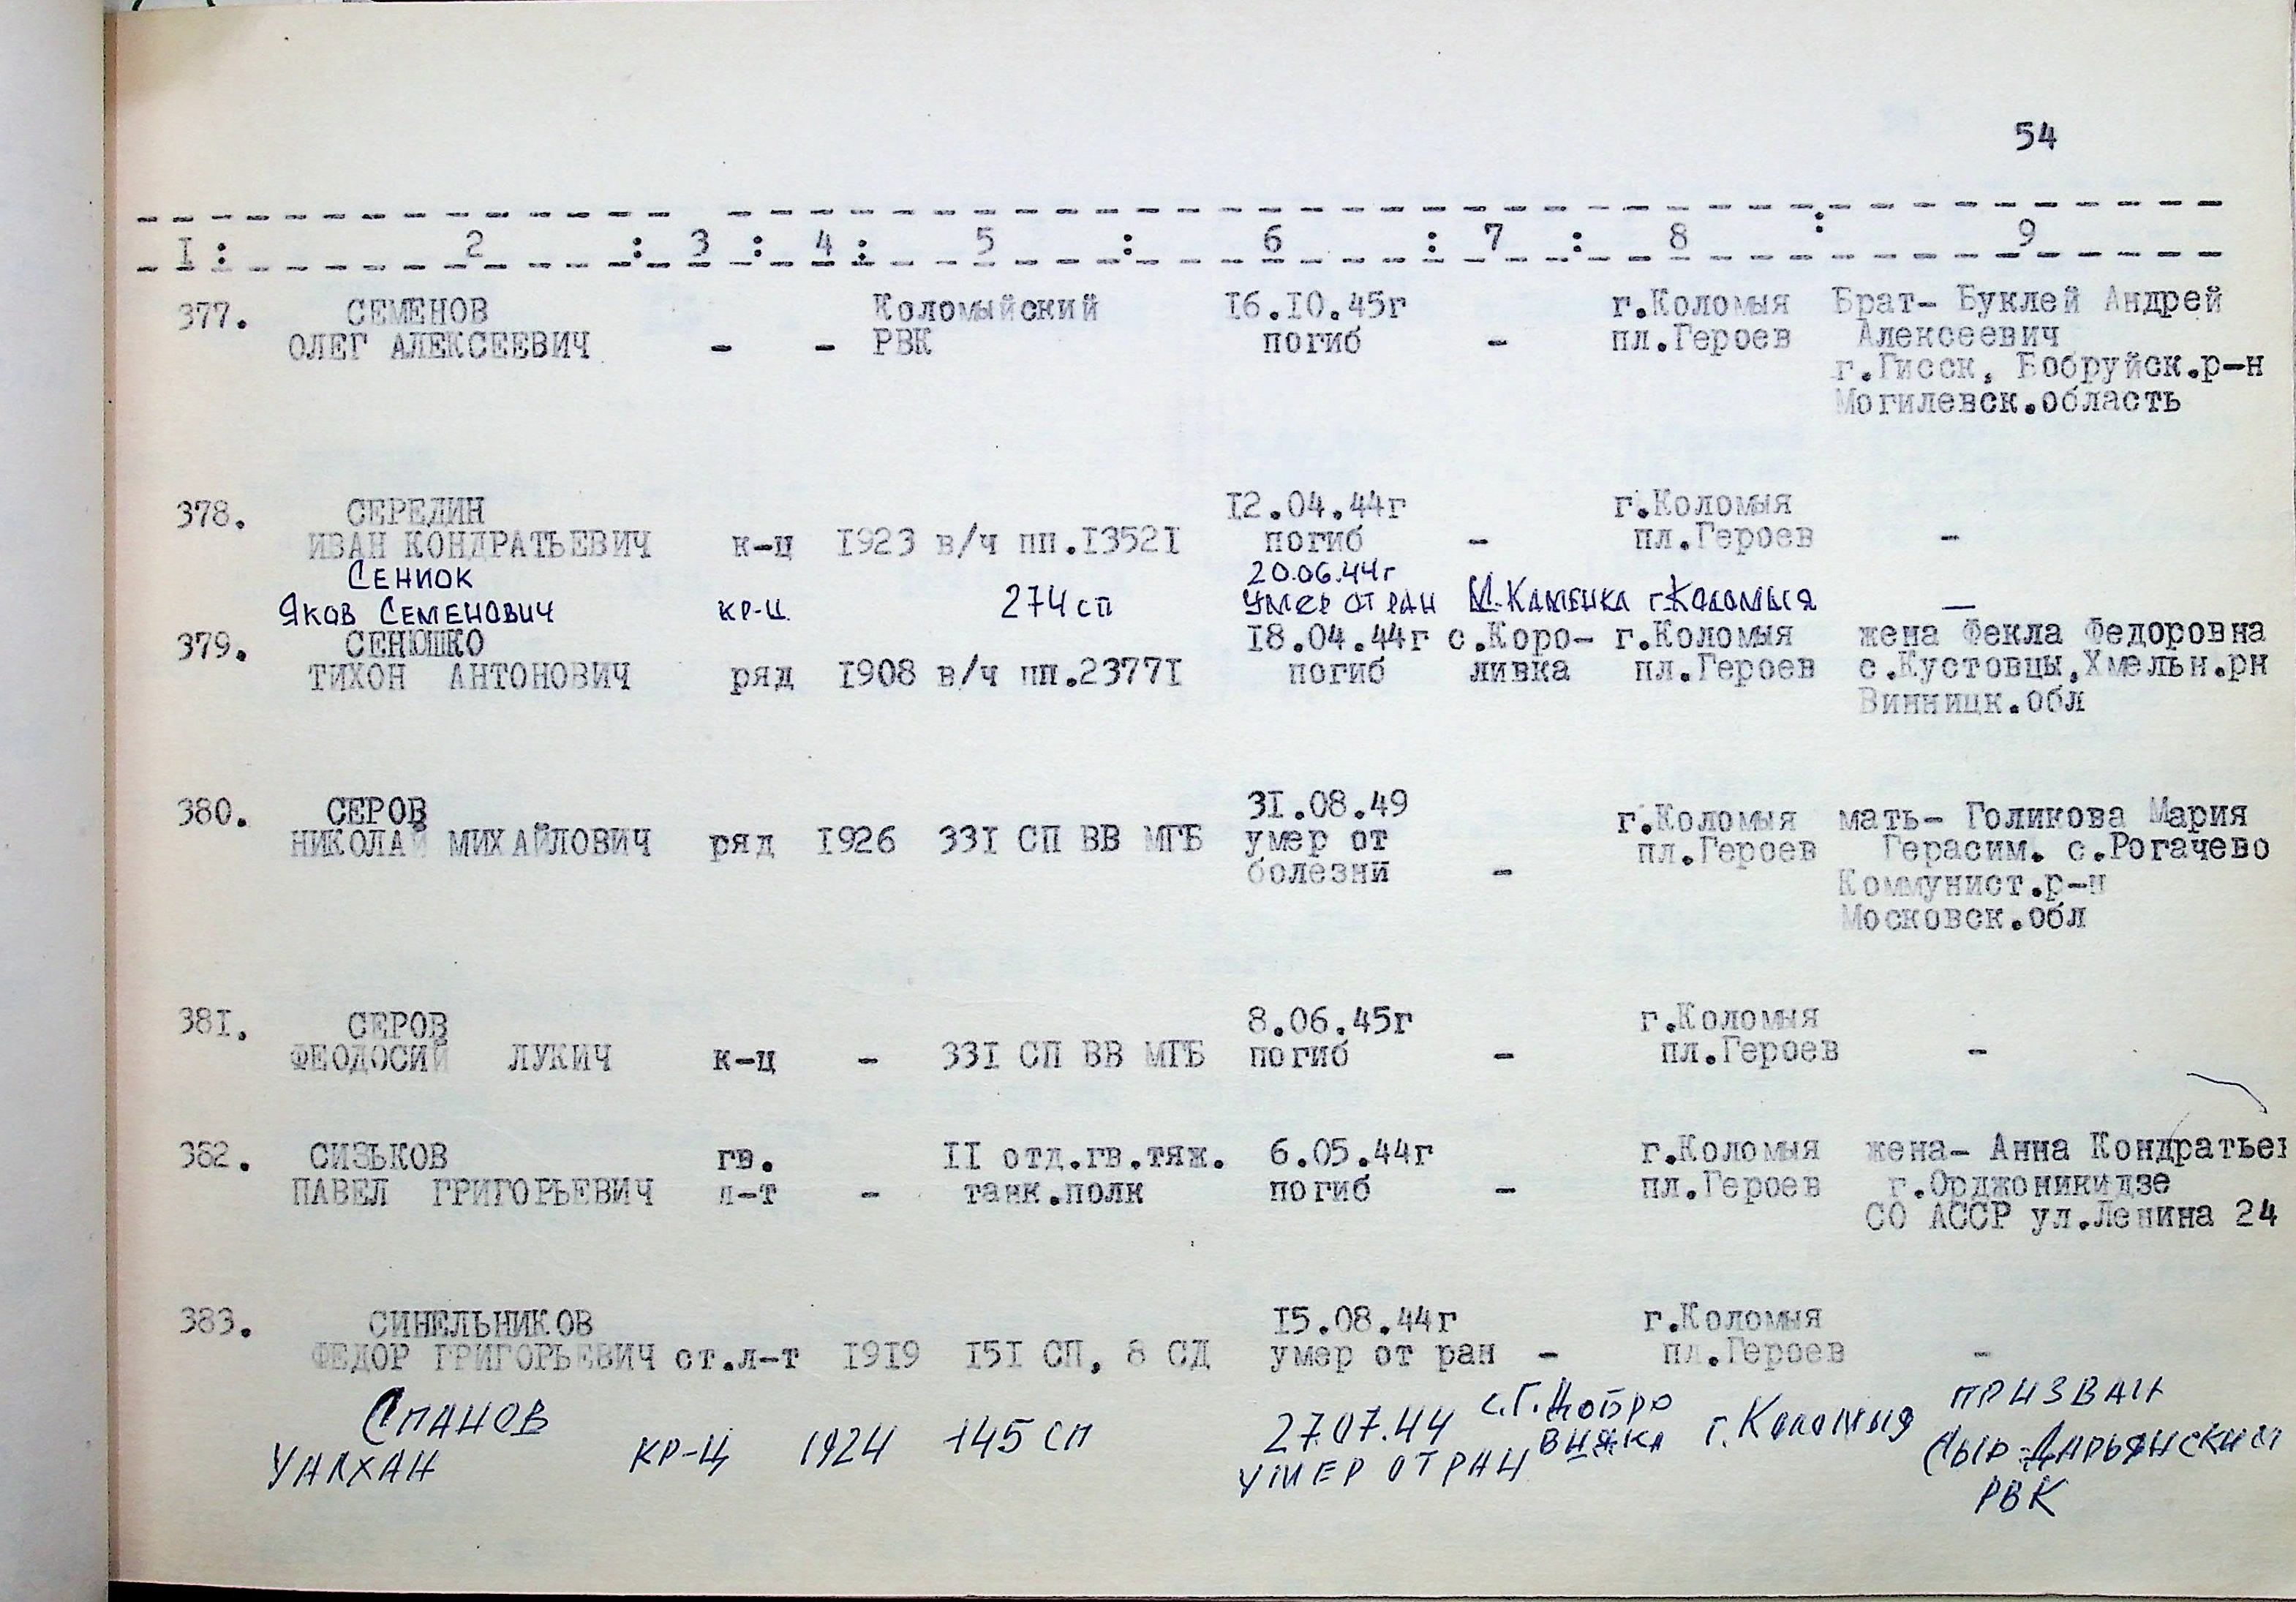 54
I : 2 : 3 : 4 : 5 : 6 : 7 : 8 : 9
377. СЕМЕНОВ Коломыйский 16.10.45г г.Коломыя Брат- Буклей Андрей
ОЛЕГ АЛЕКСЕЕВИЧ - - РВК погиб - пл.Героев Алексеевич
г.Гисск, Бобруйск.р-н
Могилевск.область
378. СЕРЕДИН 12.04.44г г.Коломыя
ИВАН КОНДРАТЬЕВИЧ к-ц 1923 в/ч пп.13521 погиб - пл.Героев -
Сениок 20.06.44г
Яков Семенович кр-ц 274 сп умер от ран М.Каменка г.Коломыя —
379. СЕНЮШКО 18.04.44г с.Коро- г.Коломыя жена Фекла Федоровна
ТИХОН АНТОНОВИЧ ряд 1908 в/ч пп.23771 погиб ливка пл.Героев с.Кустовцы,Хмельн.рн
Винницк.обл
380. СЕРОВ 31.08.49 г.Коломыя мать- Голикова Мария
НИКОЛАЙ МИХАЙЛОВИЧ ряд 1926 331 СП ВВ МГБ умер от пл.Героев Герасим. с.Рогачево
болезни - Коммунист.р-н
Московск.обл
381. СЕРОВ 8.06.45г г.Коломыя
ФЕОДОСИЙ ЛУКИЧ к-ц - 331 СП ВВ МГБ погиб - пл.Героев -
382. СИЗЬКОВ гв. II отд.гв.тяж. 6.05.44г г.Коломыя жена- Анна Кондратьев
ПАВЕЛ ГРИГОРЬЕВИЧ л-т - танк.полк погиб - пл.Героев г.Орджоникидзе
СО АССР ул.Ленина 24
383. СИНЕЛЬНИКОВ 15.08.44г г.Коломыя
ФЕДОР ГРИГОРЬЕВИЧ ст.л-т 1919 151 СП, 8 СД умер от ран - пл.Героев -
Спанов 27.07.44 с.Г.Добро г.Коломыя призван
Уалхан кр-ц 1924 145 сп умер от ран Сыр-Дарьянский
РВК